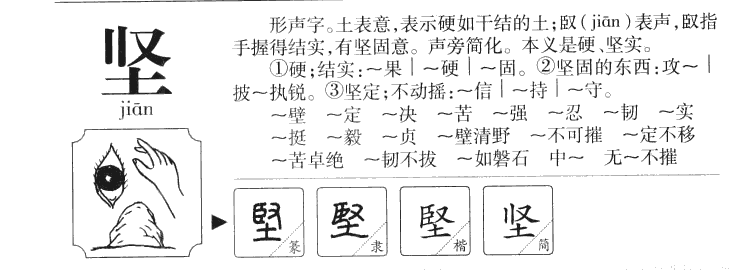 坚
jiān
形声字。土表意,表示硬如干结的土;臤(jiān)表声,臤指
手握得结实,有坚固意。声旁简化。本义是硬、坚实。
①硬;结实:～果｜～硬｜～固。②坚固的东西:攻～｜
披～执锐。③坚定;不动摇:～信｜～持｜～守。
～壁 ～定 ～决 ～苦 ～强 ～忍 ～韧 ～实
～挺 ～毅 ～贞 ～壁清野 ～不可摧 ～定不移
～苦卓绝 ～韧不拔 ～如磐石 中～ 无～不摧
堅 篆 堅 隶 堅 楷 坚 简